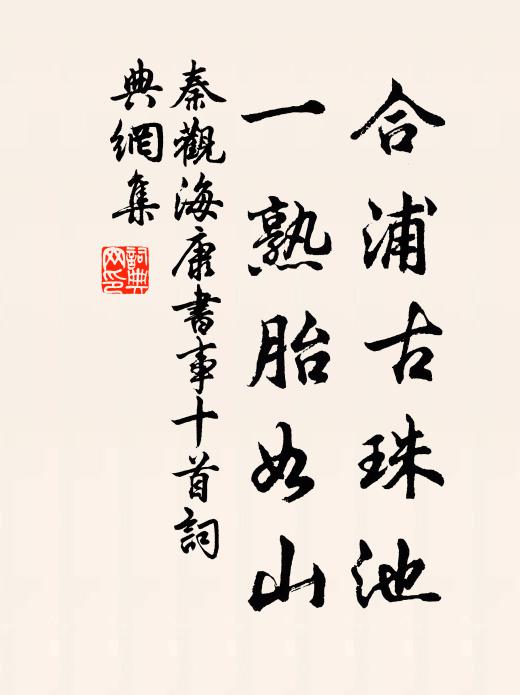 合浦古珠池
一熟胎如山
秦觀海康書事十首詞
典網集
詞典
网印